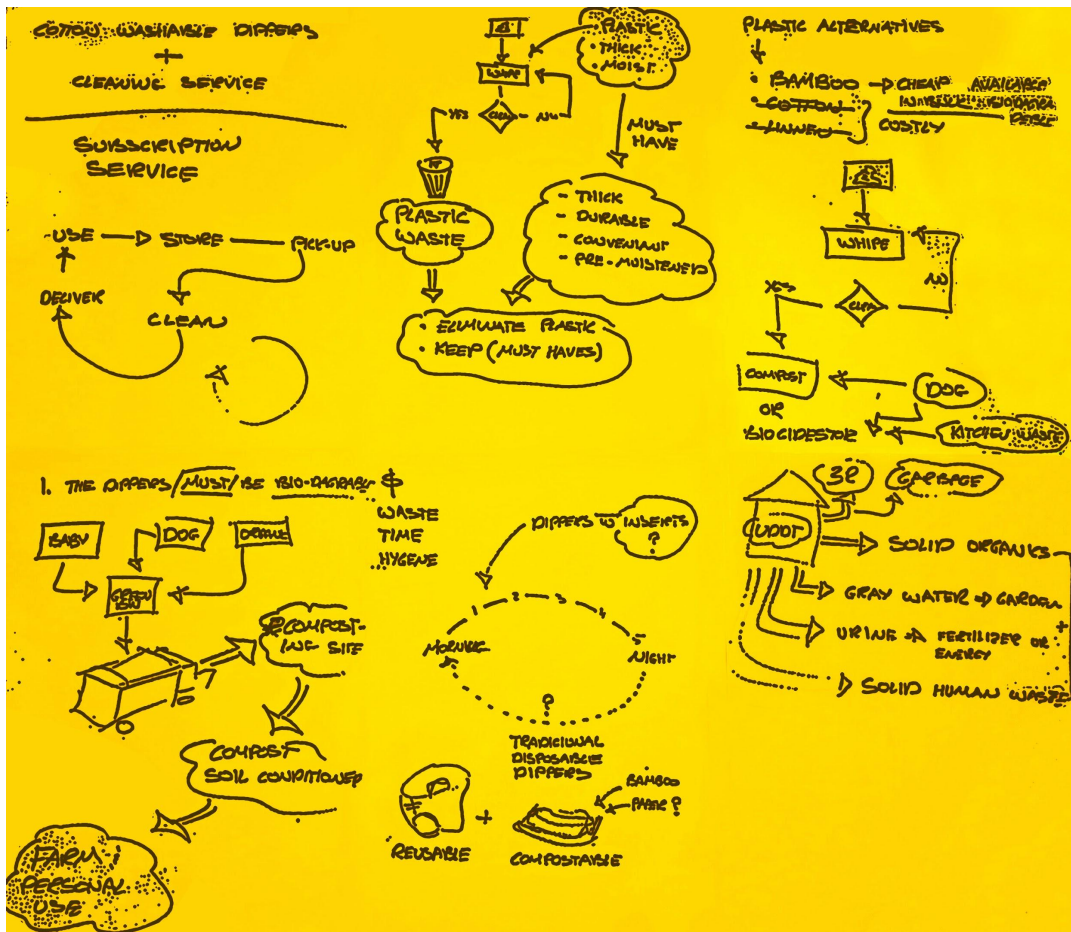 COTTON WASHABLE DIPPERS
+
CLEANING SERVICE
SUBSCRIPTION
SERVICE
USE
STORE
PICK-UP
DELIVER
CLEAN
PLASTIC
• THICK
• MOIST
WHIPE
YES
NO
MUST
HAVE
PLASTIC
WASTE
- THICK
- DURABLE
- CONVENIANT
- PRE-MOISTENED
• ELIMINATE PLASTIC
• KEEP (MUST HAVES)
PLASTIC ALTERNATIVES
• BAMBOO
CHEAP
AVAILABLE
• COTTON
• LINNEN
COSTLY
WHIPE
NO
YES
COMPOST
DOG
OR
KITCHEN WASTE
1. THE DIPPERS /MUST/ BE BIO-DAGRABLE &
WASTE
TIME
HYGENE
BABY
DOG
GREEN
BIN
COMPOST-
ING SITE
COMPOST
SOIL CONDITIONER
FARM /
PERSONAL
USE
DIPPERS W INSERTS
?
1 2 3 4 5
MORNING
NIGHT
?
TRADICIONAL
DISPOSABLE
DIPPERS
BAMBOO
PAPER ?
+
REUSABLE
COMPOSTABLE
3R
GARBAGE
UDDT
SOLID ORGANICS
GRAY WATER ⇒ GARDEN
URINE ⇒ FERTILIZER OR
ENERGY
SOLID HUMAN WASTE